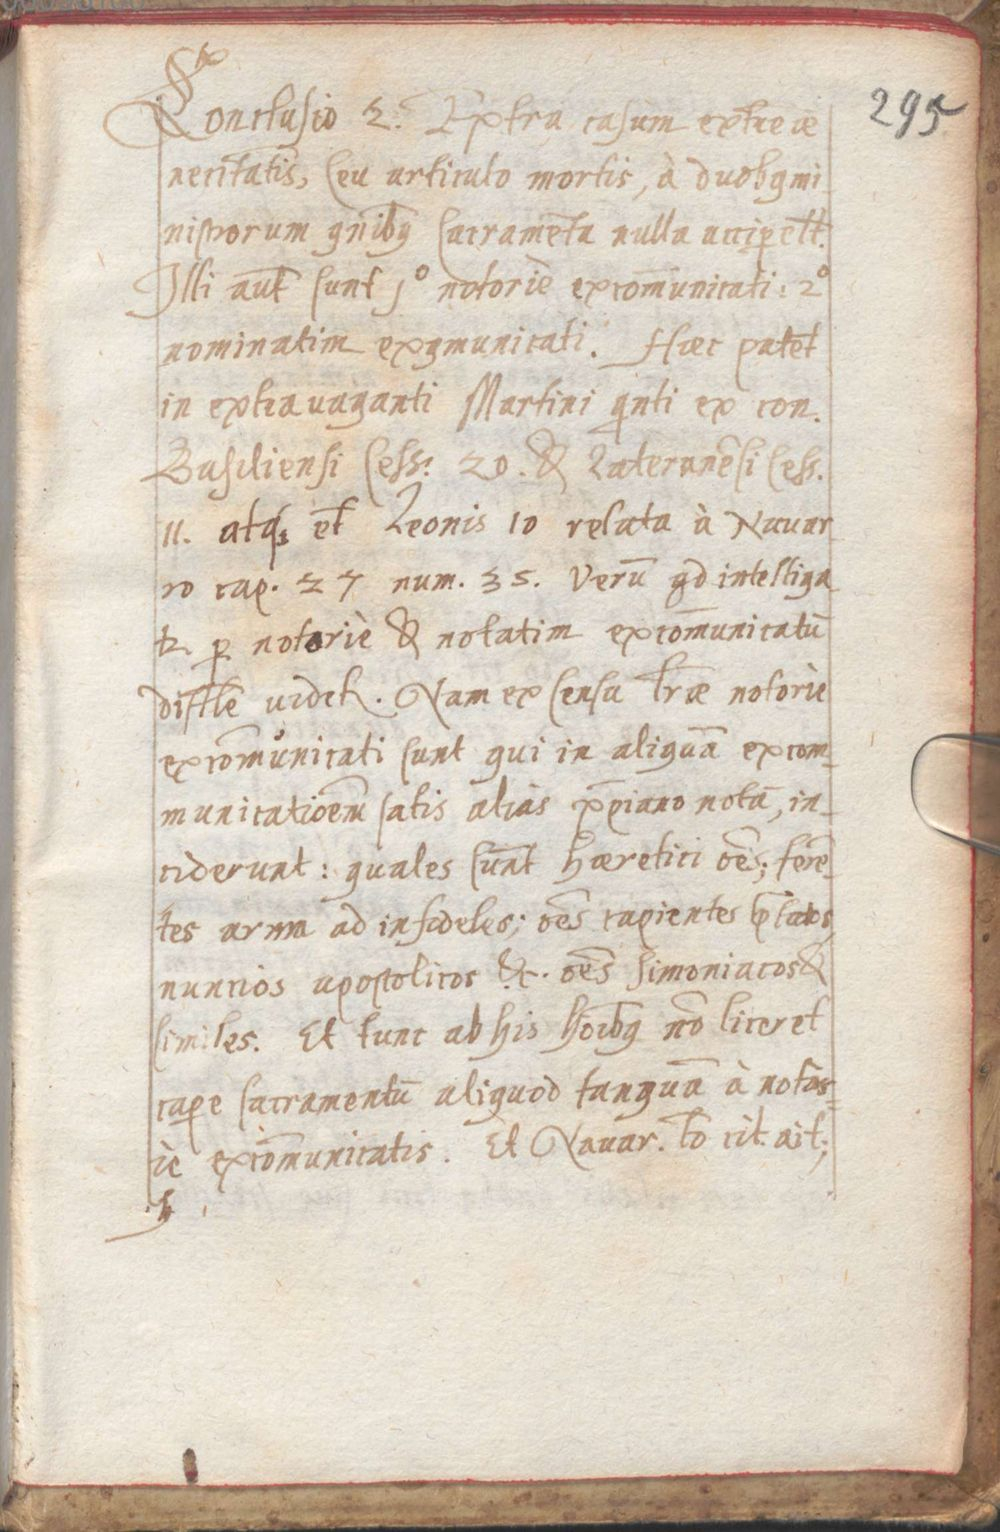 295
Conclusio 2. Extra casum extreæ
necītatis, seu articulo mortis, à duobꝯ mi
nistrorum gn̄ibꝯ sacramēta nulla accip̱e lt̄.
Illi aūt sunt 1º notoriè excōmunicati: 2º
nominatim exꝯmunicati. Hæc patet
in extrauaganti Martini qnti ex con.
Basiliensi sess: 20. & Lateranēsi sess.
11. atq₃ et Leonis 10 relata à Nauar
ro cap. 27 num. 35. Verū qd intelliga
tr. p̱ notoriè & notatim excōmunicatū
diffle uidetr. Nam ex sensu lr̄æ notoriè
excōmunicati sunt qui in aliquā excom-
municatioēm satis aliàs xp̄iano notā, in-
ciderunt: quales sunt hæretici oēs; ferē-
tes arma ad infideles; oēs capientes p̄latos,
nuncios apostolicos &c. oēs simoniacos &
similes. Et tunc ab his hoībꝯ nō liceret
cap̱e sacramentū aliquod tanquā à notor-
iè excōmunicatis. Et Nauar. lō cit. ait;